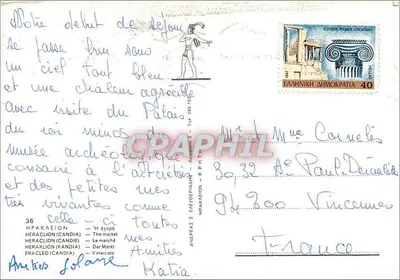 Notre début de séjour
se passe bien sous
un ciel tout bleu
et une chaleur agréable
avec visite du Palais
du roi Minos du
musée archéologique
consacré à l'
et des petites mers
très vivantes comme
celle-ci toutes
mes
Amitiés
Katia
Amitiés Solange
36
ΗΡΑΚΛΕΙΟΝ — Ἡ ἀγορά
HERACLION (CANDIA) — The market
HERACLION (CANDIE) — Le marché
HERAKLION (KANDIA) — Der Markt
ERACLEO (CANDIA) — Il mercato
ΕΛΛΗΝΙΚΗ ΔΗΜΟΚΡΑΤΙΑ 40
CPAPHIL
Mr et Mme
30,32 Av Paul Déroulède
94300 Vincennes
France